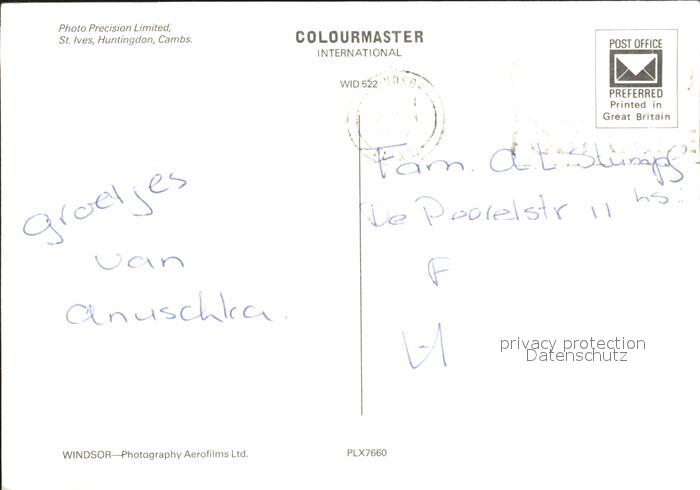 Photo Precision Limited,
St. Ives, Huntingdon, Cambs.
COLOURMASTER
INTERNATIONAL
WID 522
POST OFFICE
PREFERRED
Printed in
Great Britain
groetjes
van
anuschka.
Fam.
11 hs:
F
privacy protection
Datenschutz
WINDSOR—Photography Aerofilms Ltd.
PLX7660